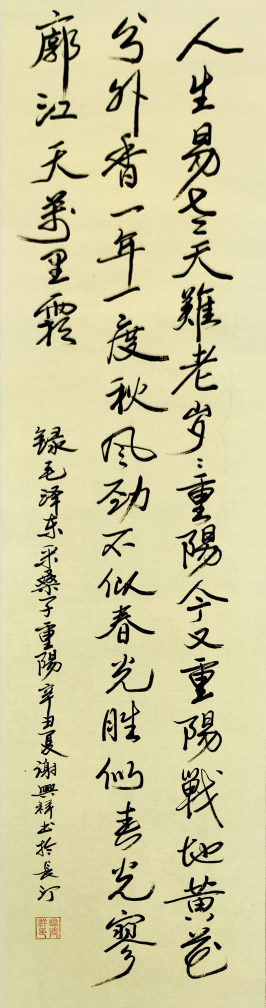 人生易老天難老岁々重陽今又重陽戰地黄花
分外香一年一度秋风劲不似春光胜似春光寥
廓江天萬里霜
録毛泽东采桑子重陽辛丑夏谢興祥书於長汀